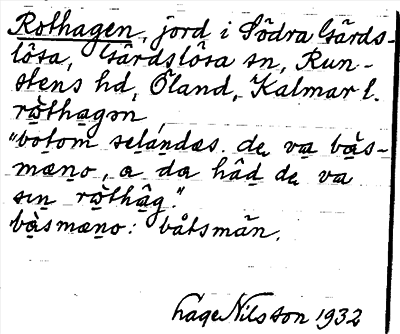 Rothagen, jord i Södra Gärds-
lösa, Gärdslösa sn, Run-
stens hd, Öland, Kalmar l.
ròthagən
"botom seländæs. de va bàs-
mæno, a da hâd de va
sin ròthâg."
bàsmæno: båtsmän.
Åage Nilsson 1932